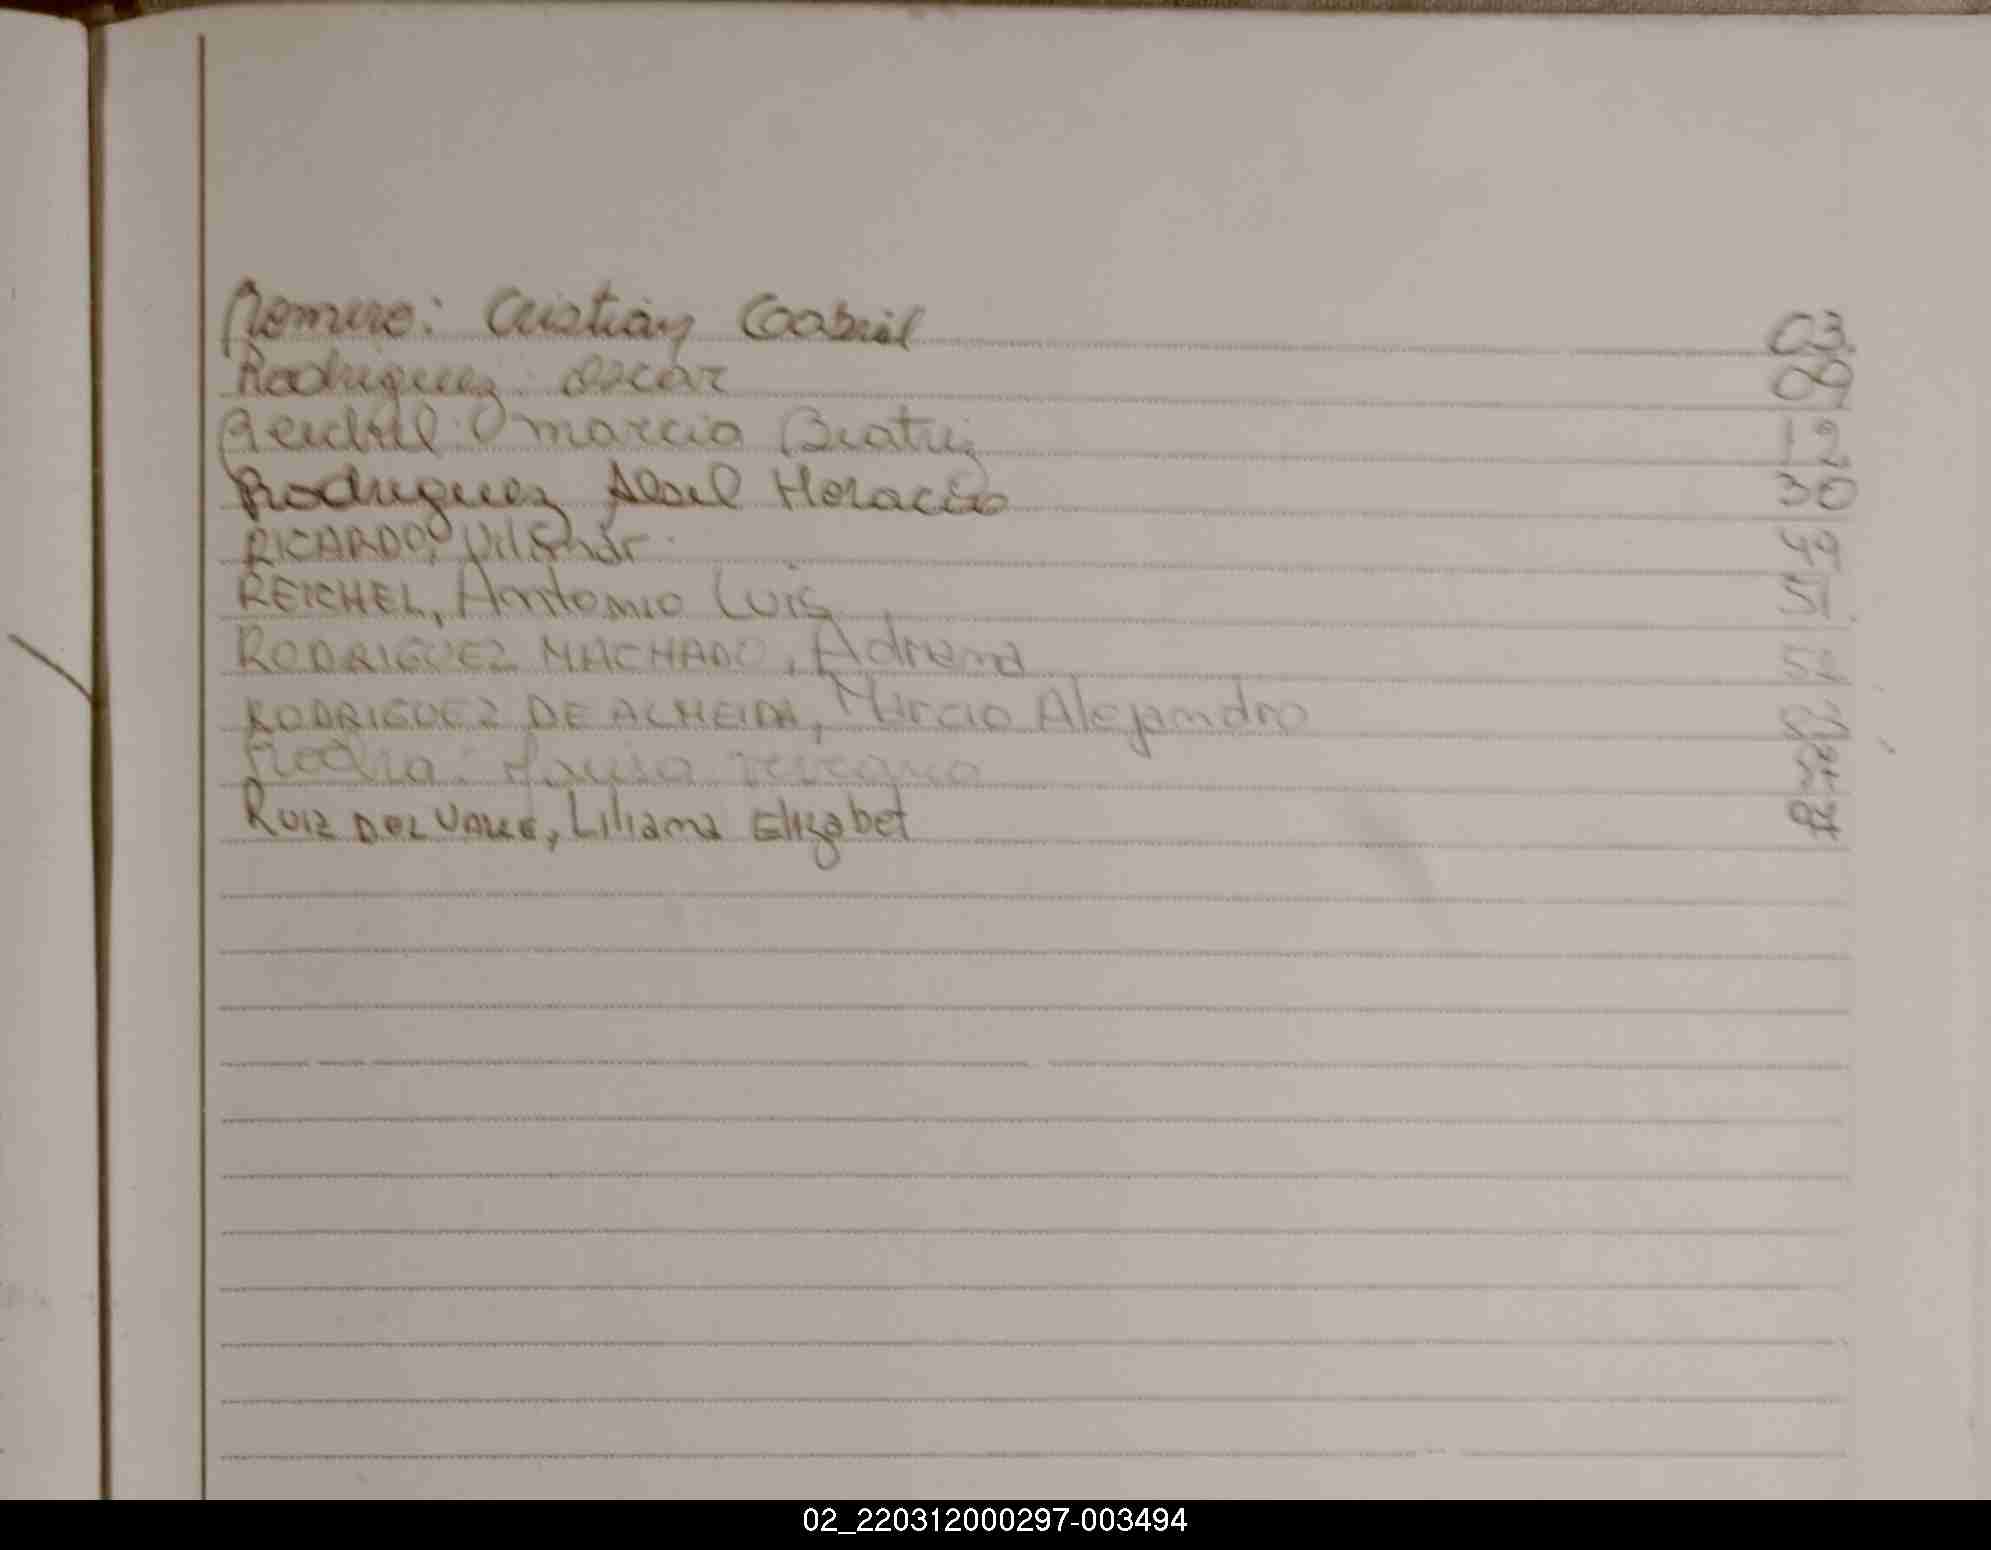 Romero: Cristián Gabriel 03
Rodriguez: Oscar 09
Reichel: Marcia Beatriz 12
Rodriguez Abel Horacio 30
RICARDO, Vilmar 49
REICHEL, Antonio Luis 51
RODRIGUEZ MACHADO, Adriana
RODRIGUEZ DE ALMEIDA, Marcio Alejandro
RUIZ DEL VALLE, Liliana Elizabet
02_220312000297-003494